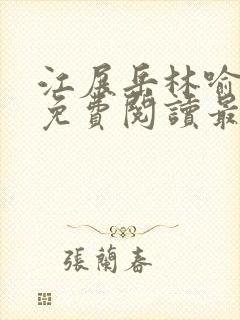 江展岳林喻
免費閱讀最
張蘭春